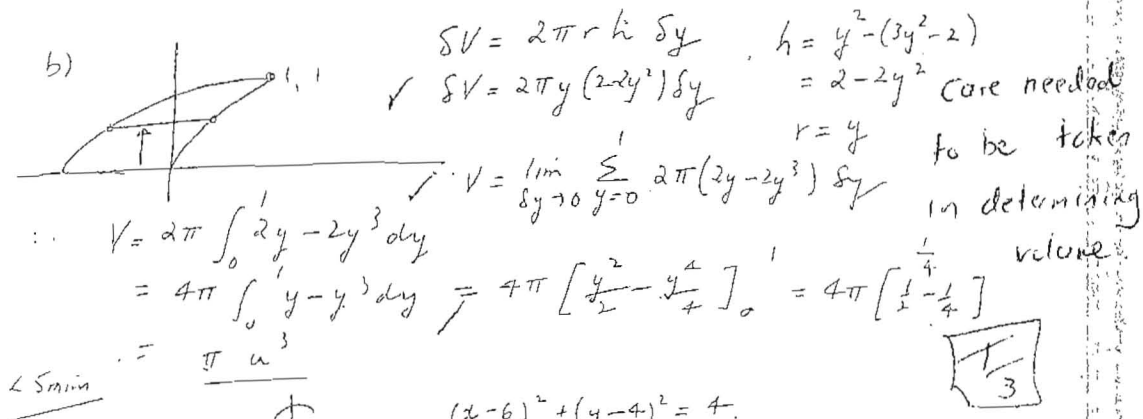 b)
1, 1
δV = 2πrh δy
h = y² - (3y² - 2)
✓ δV = 2πy(2-2y²)δy
= 2 - 2y²
r = y
Care needed
to be taken
in determining
volume.
✓ ∴ V = lim δy→0 Σ y=0 1 2π(2y - 2y³) δy
∴ V = 2π ∫₀¹ 2y - 2y³ dy
= 4π ∫₀¹ y - y³ dy = 4π [y²/2 - y⁴/4]₀¹ = 4π [1/2 - 1/4]
1/4
= π u³
3
< 5min
(x-6)² + (y-4)² = 4.